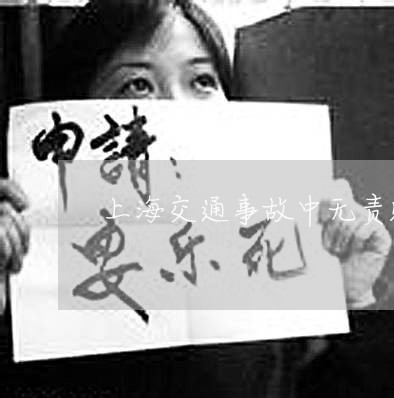 申請：
上海交通事故中无责
要乐死